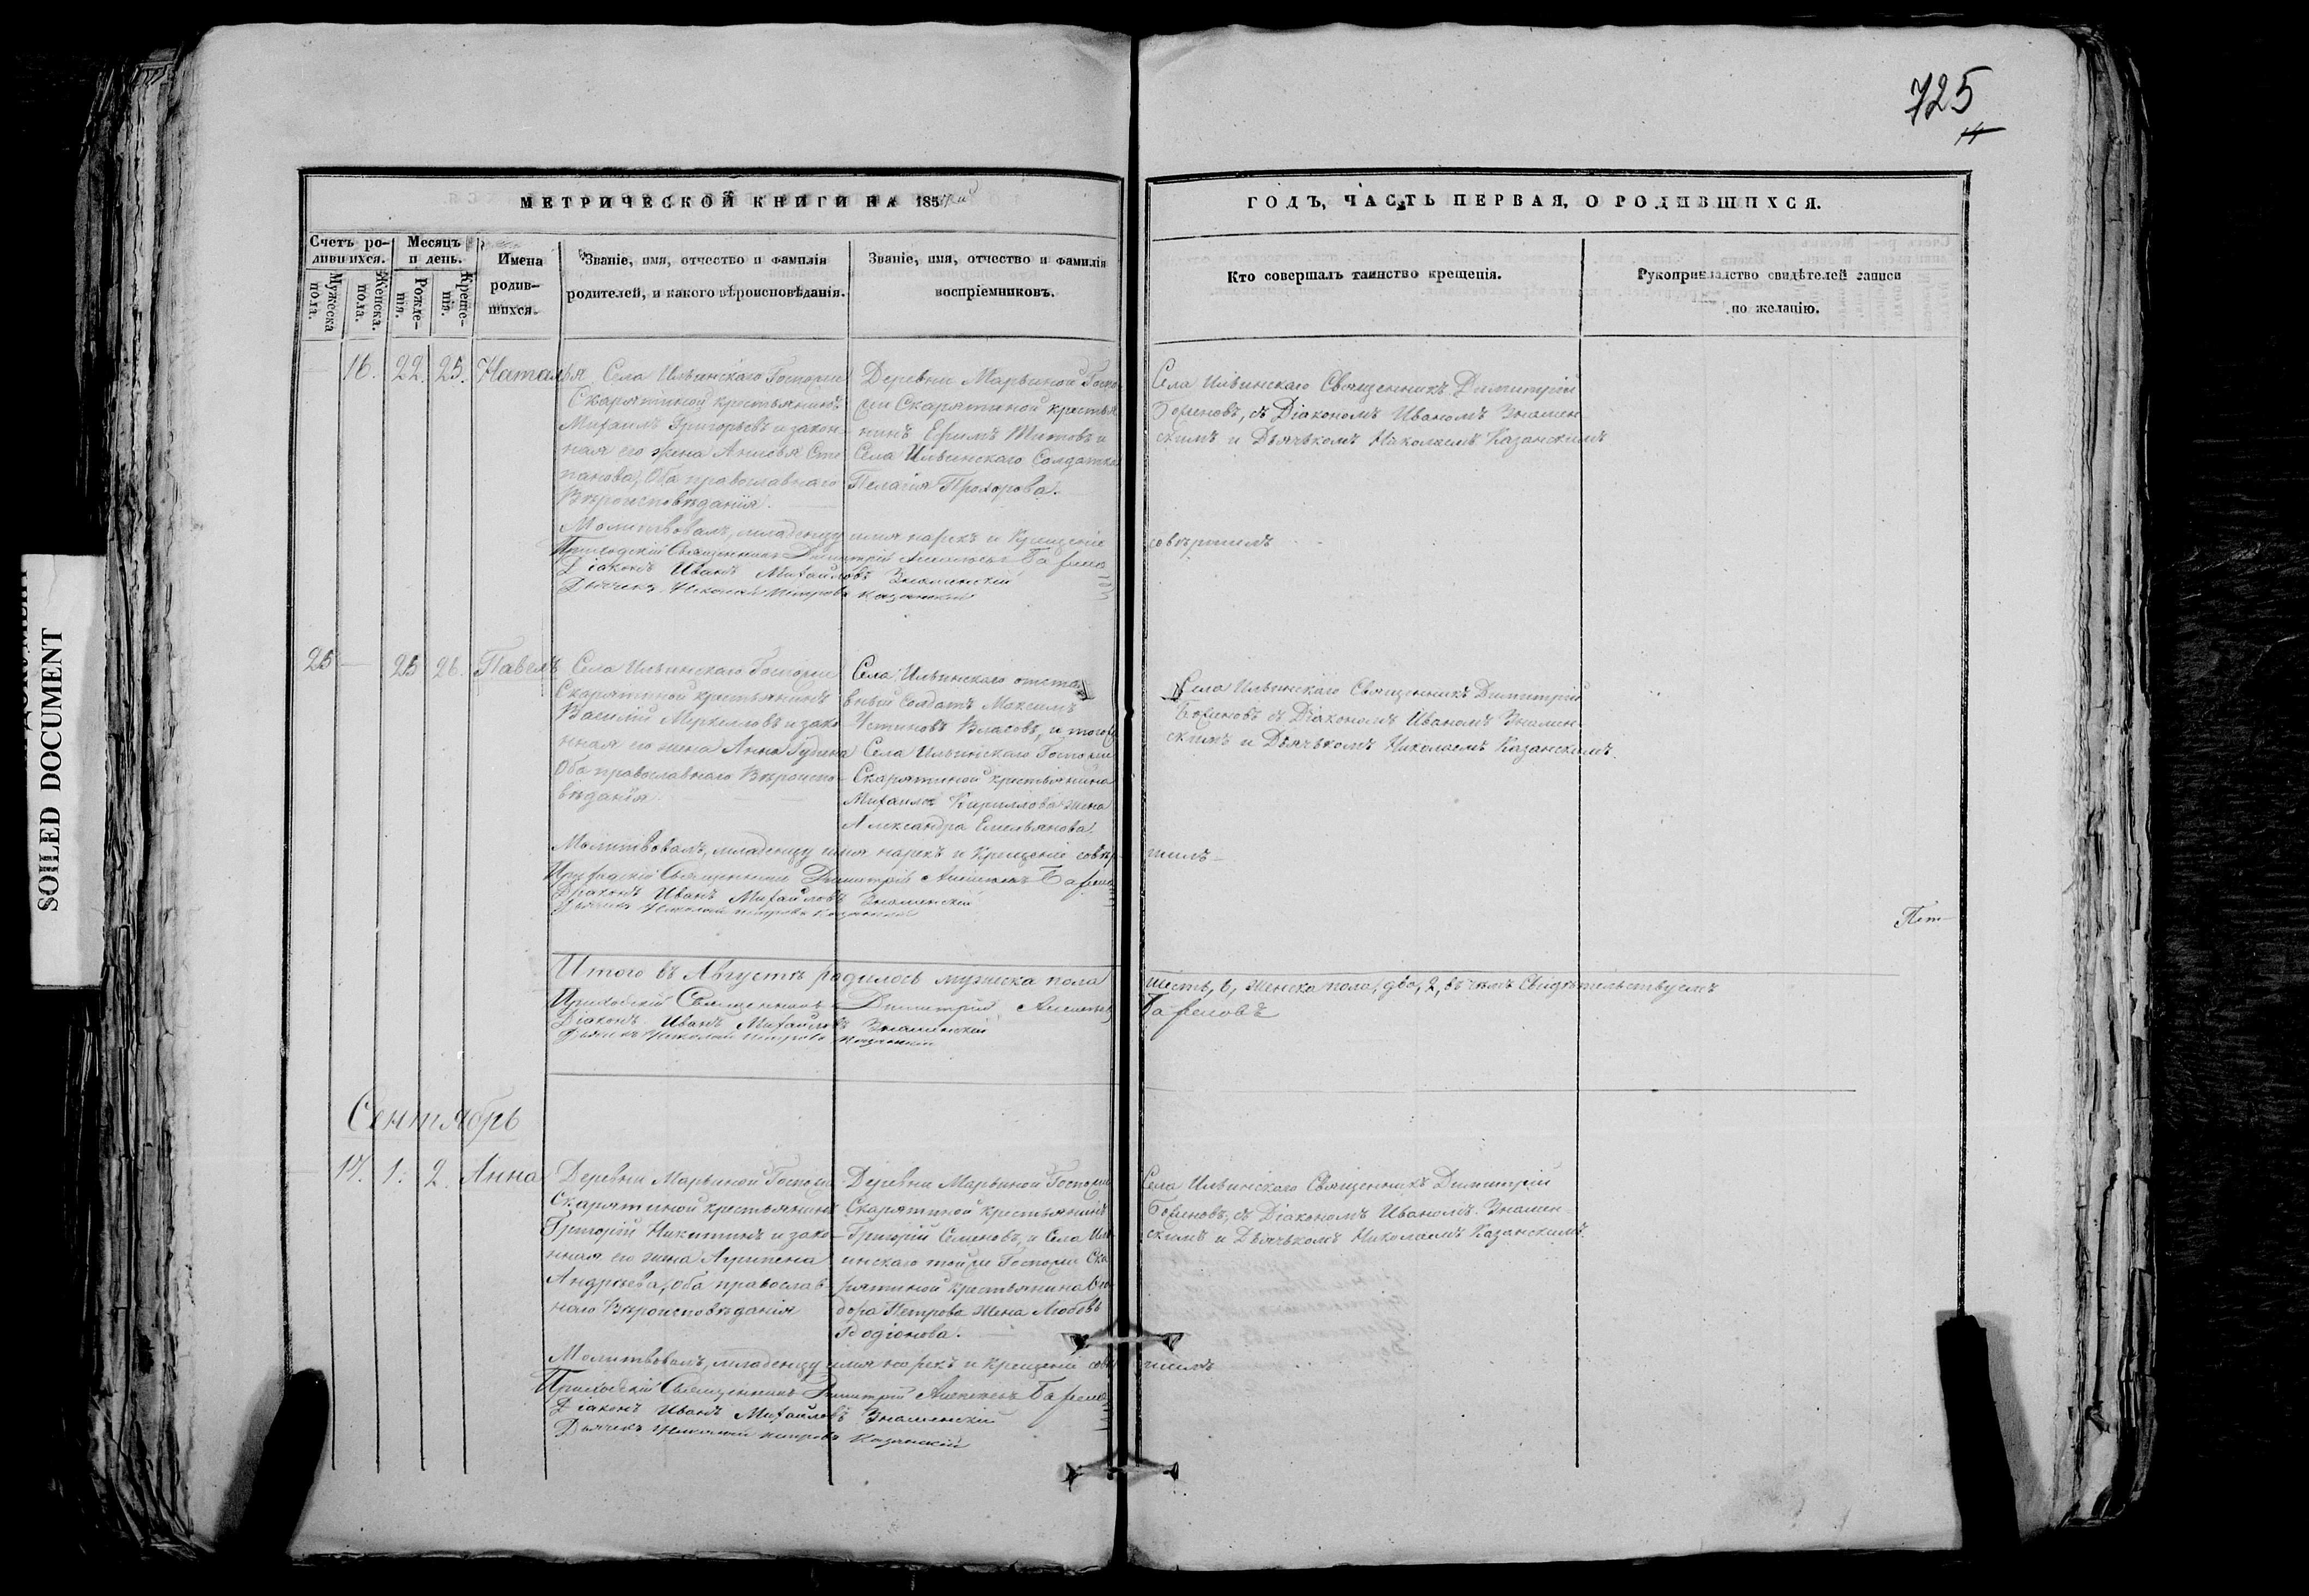 725
14
МЕТРИЧЕСКОЙ КНИГИ НА 185
ГОДЪ, ЧАСТЬ ПЕРВАЯ, О РОДИВШИХСЯ.
Счетъ родившихся.
Мужеска пола.
Женска. пола.
Месяцъ и день.
Рождения.
Крещенія.
Имена родившихся.
Званіе, имя, отчество и фамилія родителей, и какого вѣроисповѣданія.
Званіе, имя, отчество и фамилія воспріемниковъ.
Кто совершалъ таинство крещенія.
Рукоприкладство свидѣтелей записи по желанію.
16. 22. 25. Наталья
Села Ильинскаго Госпожи
Скарятиной крестьянинъ
Михаилъ Григорьевъ и закон-
ная его жена Анисья Сте
панова, Оба православнаго
Вѣроисповѣданія.
Деревни Марьиной Госпо-
жи Скарятиной крестья
нинъ Ефимъ Титовъ и
Села Ильинскаго Солдатка
Пелагія Прохорова.
Села Ильинскаго Священникъ Димитрій
съ Діакономъ Иваномъ Знамен-
скимъ и Дьячькомъ Николаемъ Казанскимъ
Молитвовалъ, младенцу имя нарекъ и Крещеніе совѣршилъ
Приходскій Священникъ Димитрій
Діаконъ Иванъ Михайловъ Знаменскій
Дьячекъ Николай Петровъ Казанскій
25 25 26. Павелъ
Села Ильинскаго Госпожи
Скарятиной крестьянинъ
Василій Меркуловъ и зако-
нная его жена Анна
Оба православнаго Вѣроиспо-
вѣданія.
Села Ильинскаго отста-
вный Солдатъ Максимъ
Устиновъ Власовъ, и того
Села Ильинскаго Госпожи
Скарятиной крестьянина
Михаила Кириллова жена
Александра Емельянова.
Села Ильинскаго Священникъ Димитрій
съ Діакономъ Иваномъ Знамен-
скимъ и Дьячькомъ Николаемъ Казанскимъ.
Молитвовалъ, младенцу имя нарекъ и Крещеніе совѣр-шилъ
Приходскій Священникъ Димитрій
Діаконъ Иванъ Михайловъ Знаменскій
Дьячекъ Николай Петровъ Казанскій
Итого въ Августѣ родилось мужеска пола шесть, 6, женска пола, два, 2, въ чемъ Свидѣтельствуемъ
Приходскій Священникъ Димитрій
Діаконъ Иванъ Михайловъ Знаменскій
Дьячекъ Николай Петровъ Казанскій
Сентябрь
17. 1. 2. Анна
Деревни Марьиной Госпожи
Скарятиной крестьянинъ
Григорій Никитинъ и зако-
нная его жена Агрипена
Андреева, оба православ-
наго Вѣроисповѣданія
Деревни Марьиной Госпожи
Скарятиной крестьянинъ
Григорій Семеновъ, и Села Иль
инскаго тойже Госпожи Ска
рятиной крестьянина
дора Петрова Жена Любовь
Родіонова.
Села Ильинскаго Священникъ Димитрій
съ Діакономъ Иваномъ Знамен-
скимъ и Дьячькомъ Николаемъ Казанскимъ.
Молитвовалъ, младенцу имя нарекъ и Крещеніе совѣршилъ
Приходскій Священникъ Димитрій
Діаконъ Иванъ Михайловъ Знаменскій
Дьячекъ Николай Петровъ Казанскій
SOILED DOCUMENT